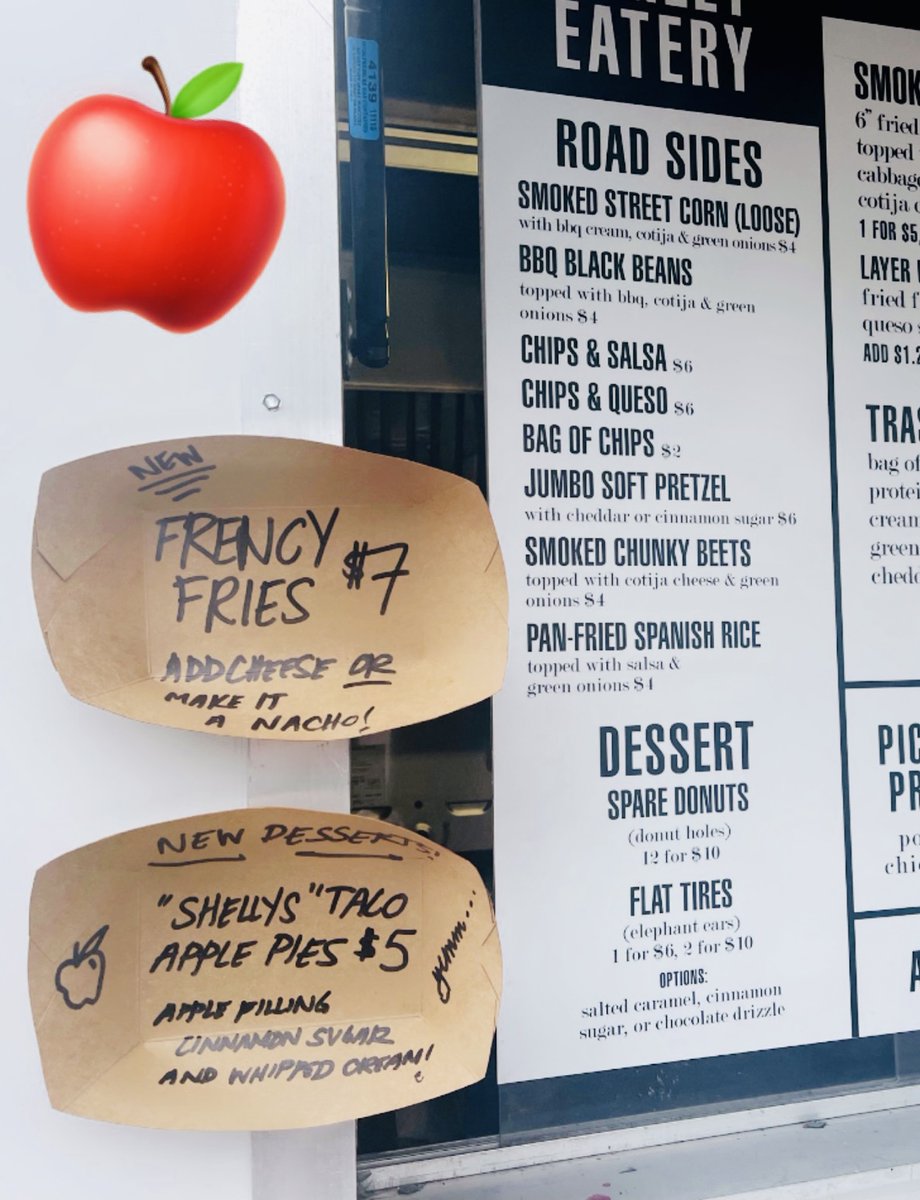 NEW
FRENCY
FRIES $7
ADD CHEESE OR
MAKE IT
A NACHO!
NEW DESSERTS!
"SHELLYS" TACO
APPLE PIES $5
yumm...
APPLE FILLING
CINNAMON SUGAR
AND WHIPPED CREAM!
4139
EATERY
ROAD SIDES
SMOKED STREET CORN (LOOSE)
with bbq cream, cotija & green onions $4
BBQ BLACK BEANS
topped with bbq, cotija & green
onions $4
CHIPS & SALSA $6
CHIPS & QUESO $6
BAG OF CHIPS $2
JUMBO SOFT PRETZEL
with cheddar or cinnamon sugar $6
SMOKED CHUNKY BEETS
topped with cotija cheese & green
onions $4
PAN-FRIED SPANISH RICE
topped with salsa &
green onions $4
DESSERT
SPARE DONUTS
(donut holes)
12 for $10
FLAT TIRES
(elephant ears)
1 for $6, 2 for $10
OPTIONS:
salted caramel, cinnamon
sugar, or chocolate drizzle
SMOK
6" fried
topped
cabbage
cotija c
1 FOR $5,
LAYER
fried f
queso
ADD $1.2
TRAS
bag of
protei
cream
green
chedd
PIC
PR
po
chi
A